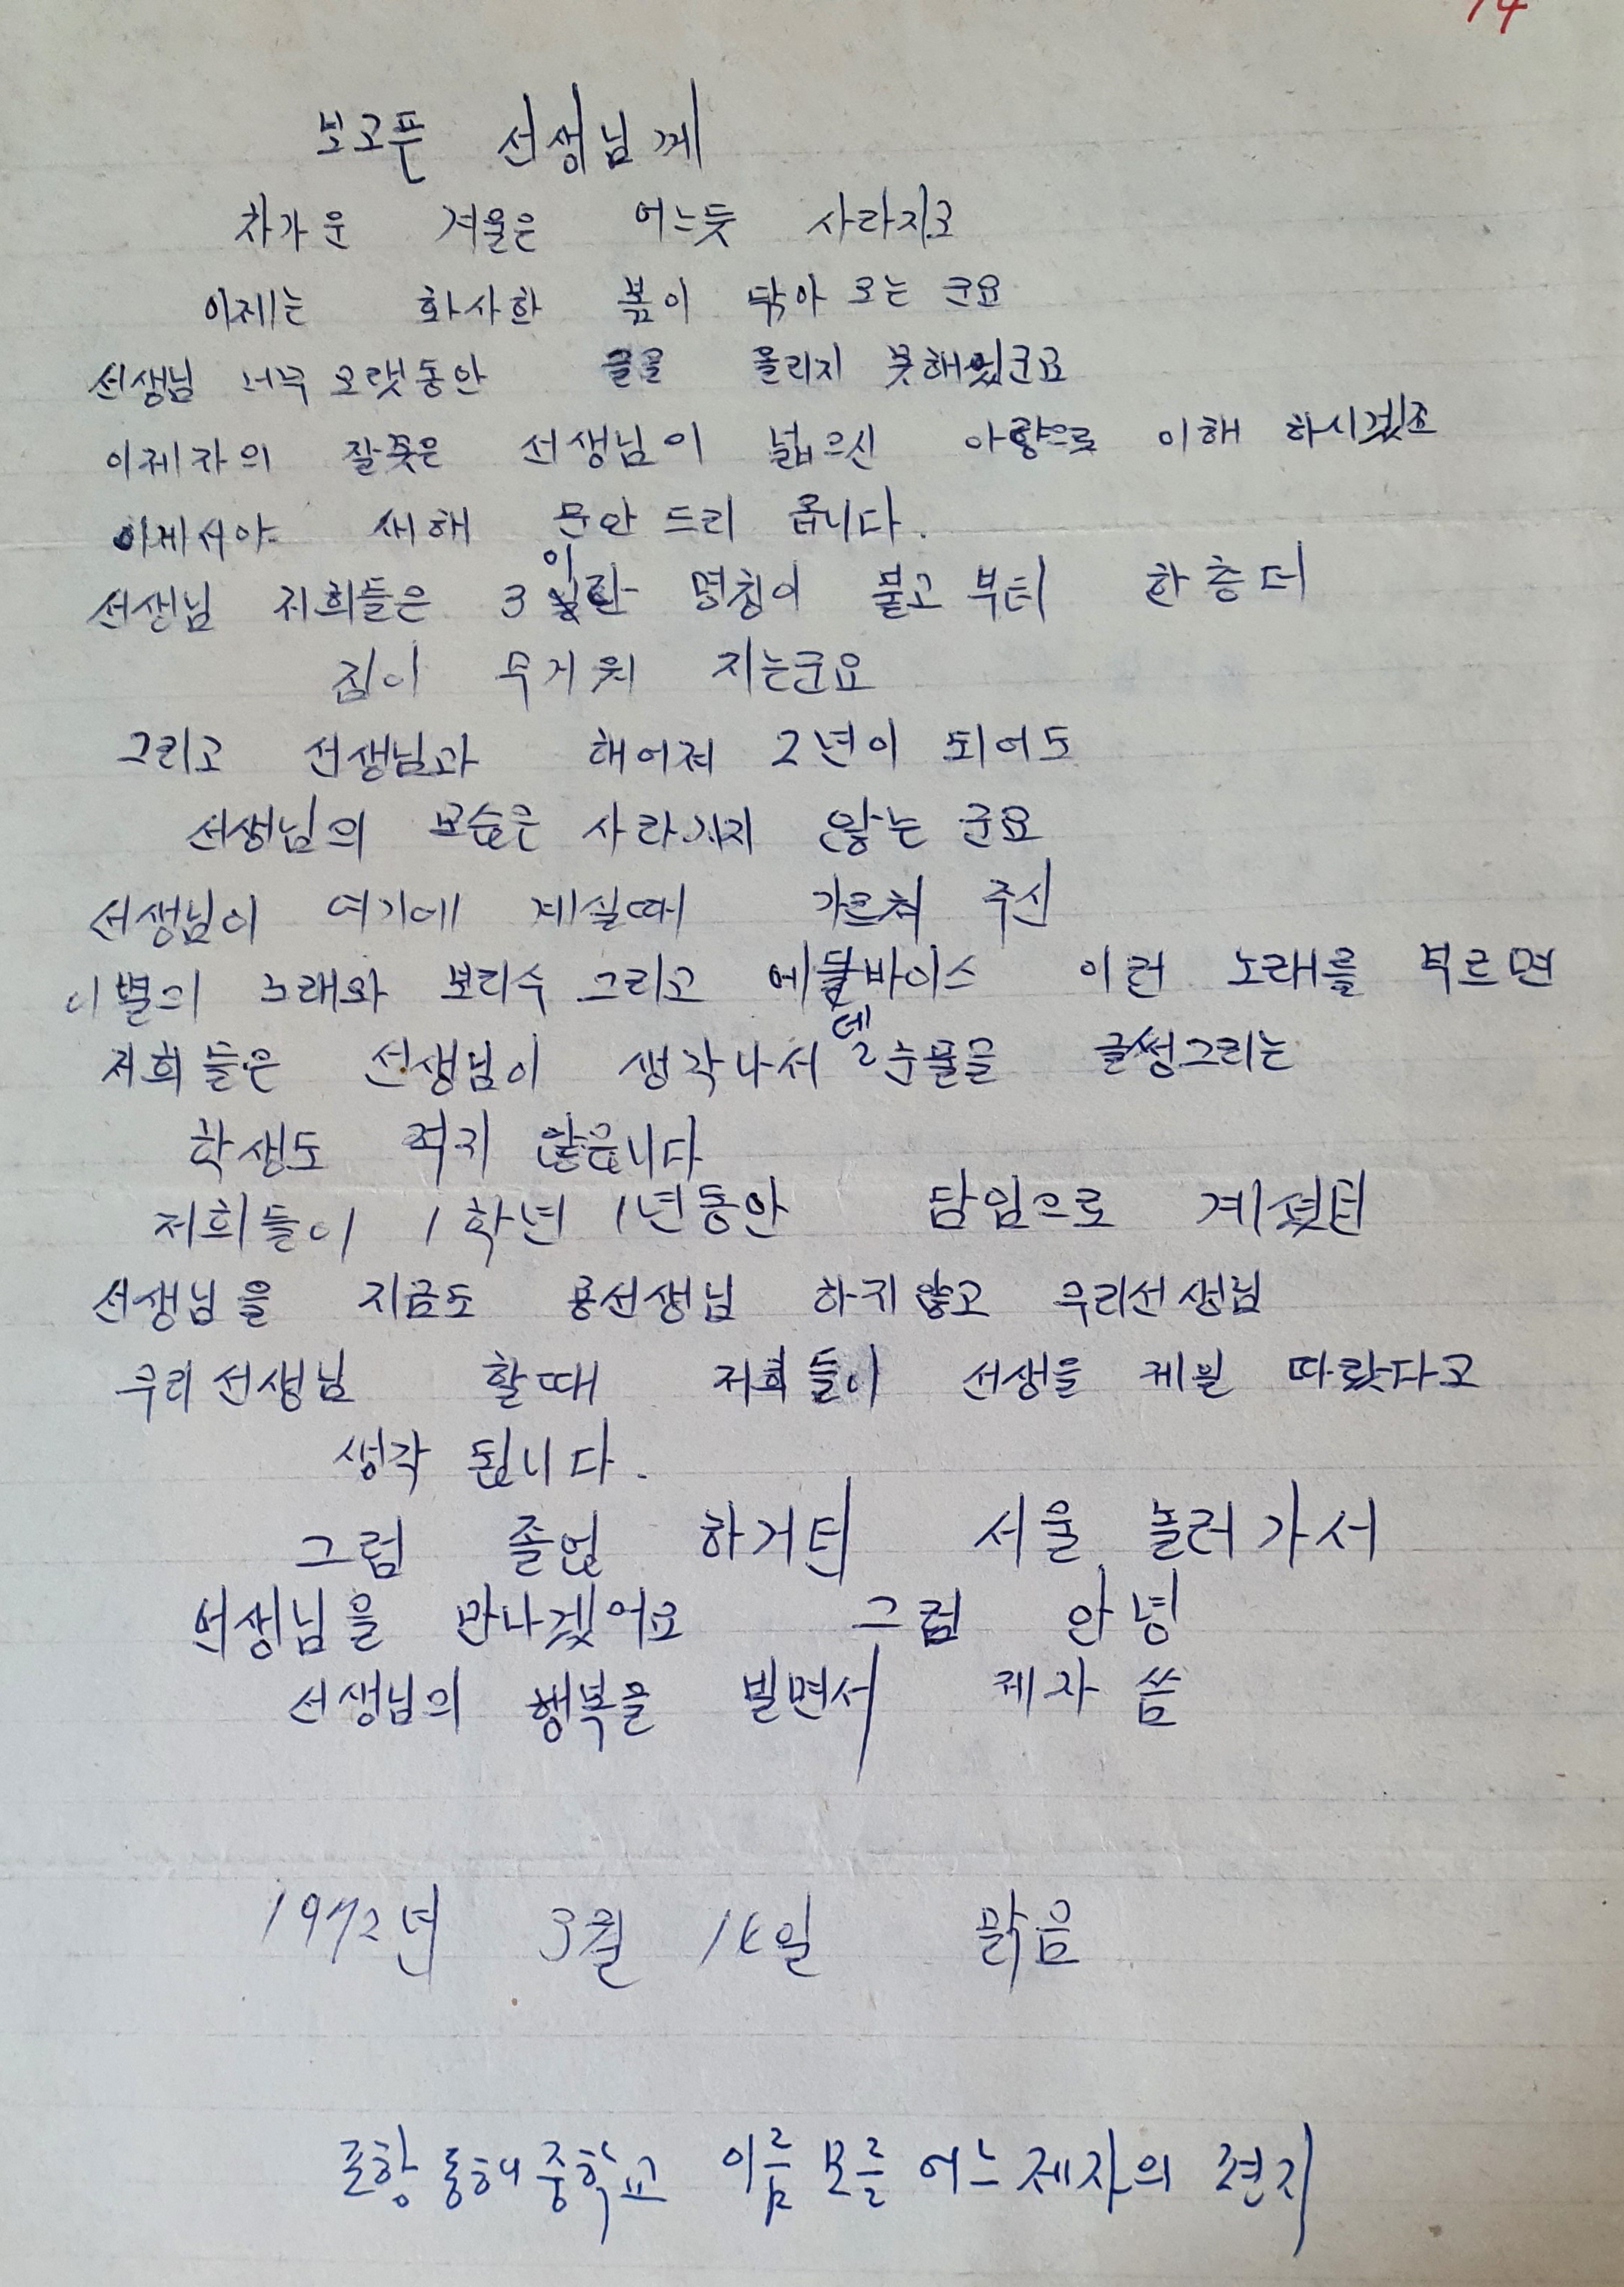 14
보고픈 선생님께
차가운 겨울은 어느듯 사라지고
이제는 화사한 봄이 닥아 오는 군요
선생님 너무 오랫동안 글을 올리지 못해읬군요
이제자의 잘못은 선생님이 넓으신 아량으로 이해 하시겠죠
이제서야 새해 문안 드리 옵니다.
선생님 저희들은 3이란 명칭이 붙고 부터 한층더
짐이 무거워 지는군요
그리고 선생님과 해어져 2년이 되어도
선생님의 모습은 사라지지 않는 군요
선생님이 여기에 계실때 가르쳐 주신
이별의 노래와 보리수 그리고 에델바이스 이런 노래를 부르면
저희들은 선생님이 생각나서 눈물을 글썽그리는
학생도 적지 않읍니다
저희들이 1학년 1년동안 담임으로 계셨던
선생님을 지금도 용선생님 하지않고 우리선생님
우리선생님 할때 저희들이 선생을 제일 따랐다고
생각 됩니다.
그럼 졸업 하거던 서울 놀러가서
선생님을 만나겠어요 그럼 안녕
선생님의 행복을 빌면서 제자 씀
1972년 3월 일 맑음
포항동해중학교 이름모를 어느 제자의 편지